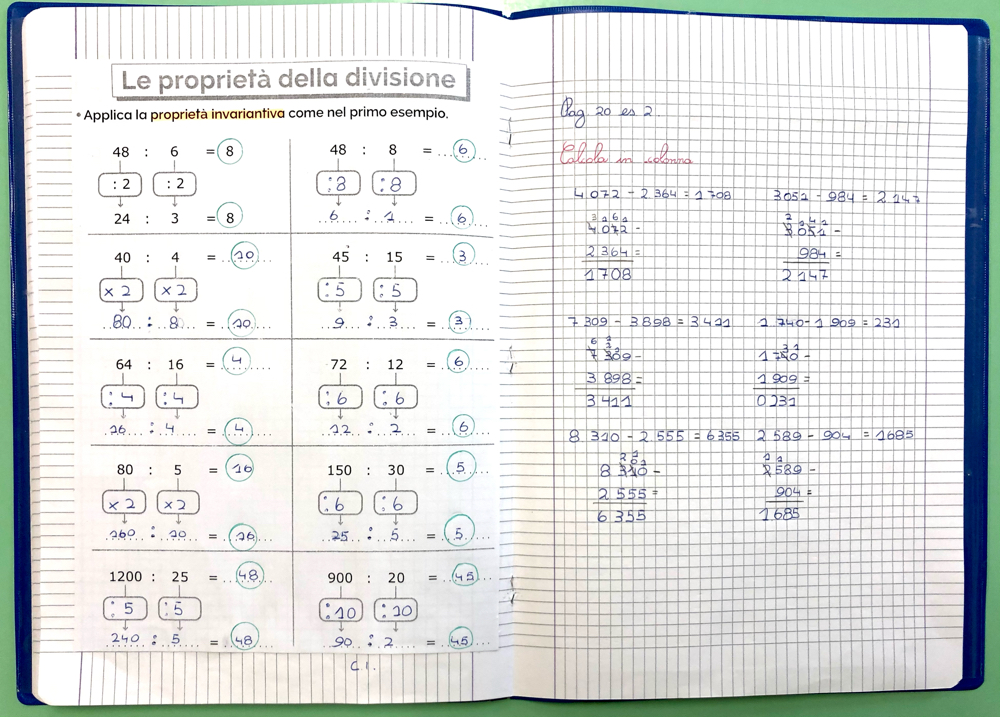 Le proprietà della divisione
• Applica la proprietà invariantiva come nel primo esempio.
48 : 6 = 8
: 2 : 2
24 : 3 = 8
48 : 8 = 6
: 8 : 8
6 : 1 = 6
40 : 4 = 10
x 2 x 2
80 : 8 = 10
45 : 15 = 3
: 5 : 5
9 : 3 = 3
64 : 16 = 4
: 4 : 4
16 : 4 = 4
72 : 12 = 6
: 6 : 6
12 : 2 = 6
80 : 5 = 16
x 2 x 2
160 : 10 = 16
150 : 30 = 5
: 6 : 6
25 : 5 = 5
1200 : 25 = 48
: 5 : 5
240 : 5 = 48
900 : 20 = 45
: 10 : 10
90 : 2 = 45
C.I.
Pag. 20 es 2.
Calcola in colonna
4.072 - 2.364 = 1 708
4.072 -
2 364 =
1708
3051 - 984 = 2.147
3.051 -
984 =
2 147
7 309 - 3 898 = 3 411
7 309 -
3 898 =
3 411
1 740 - 1 909 = 231
1 740 -
1 909 =
0231
8 310 - 2.555 = 6355
8 310 -
2 555 =
6 355
2 589 - 904 = 1685
2589 -
904 =
1685